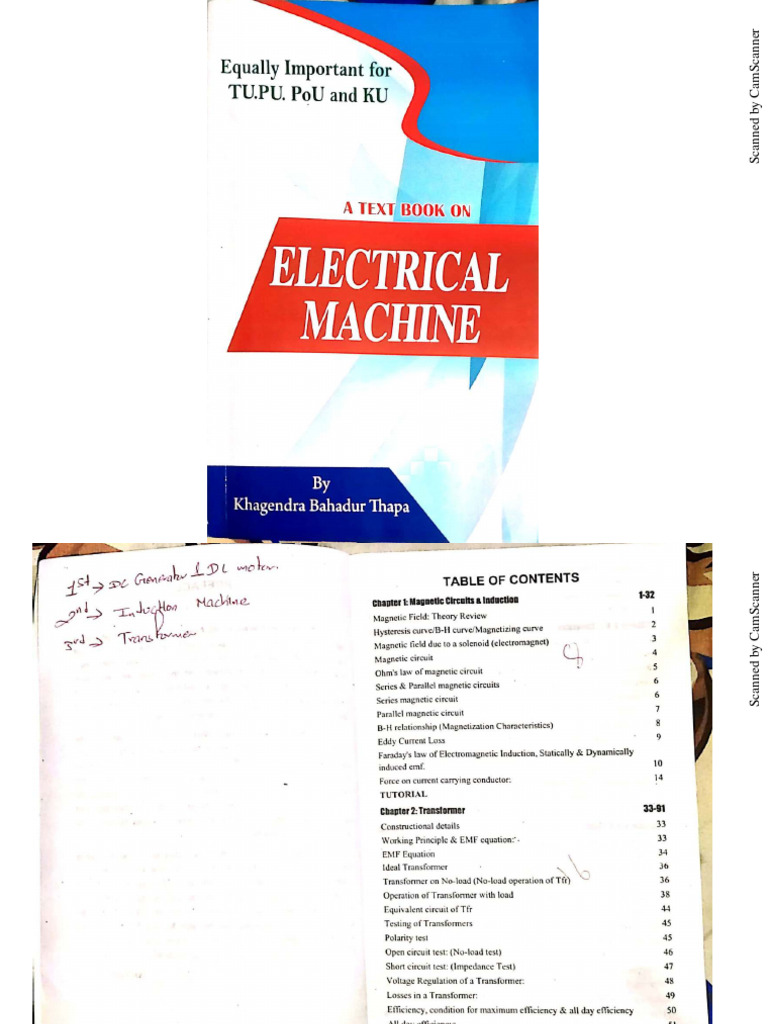 Equally Important for
TU.PU. PoU and KU
A TEXT BOOK ON
ELECTRICAL
MACHINE
By
Khagendra Bahadur Thapa
Scanned by CamScanner
1st → DC Generator & DC motor.
2nd → Induction Machine
3rd → Transformer
TABLE OF CONTENTS
Chapter 1: Magnetic Circuits & Induction 1-32
Magnetic Field: Theory Review 1
Hysteresis curve/B-H curve/Magnetizing curve 2
Magnetic field due to a solenoid (electromagnet) 3
Magnetic circuit 4
Ohm's law of magnetic circuit 5
Series & Parallel magnetic circuits 6
Series magnetic circuit 6
Parallel magnetic circuit 7
B-H relationship (Magnetization Characteristics) 8
Eddy Current Loss 9
Faraday's law of Electromagnetic Induction, Statically & Dynamically
induced emf. 10
Force on current carrying conductor: 14
TUTORIAL
Chapter 2: Transformer 33-91
Constructional details 33
Working Principle & EMF equation: 33
EMF Equation 34
Ideal Transformer 36
Transformer on No-load (No-load operation of Tfr) 36
Operation of Transformer with load 38
Equivalent circuit of Tfr 44
Testing of Transformers 45
Polarity test 45
Open circuit test: (No-load test) 46
Short circuit test: (Impedance Test) 47
Voltage Regulation of a Transformer: 48
Losses in a Transformer: 49
Efficiency, condition for maximum efficiency & all day efficiency 50
Scanned by CamScanner